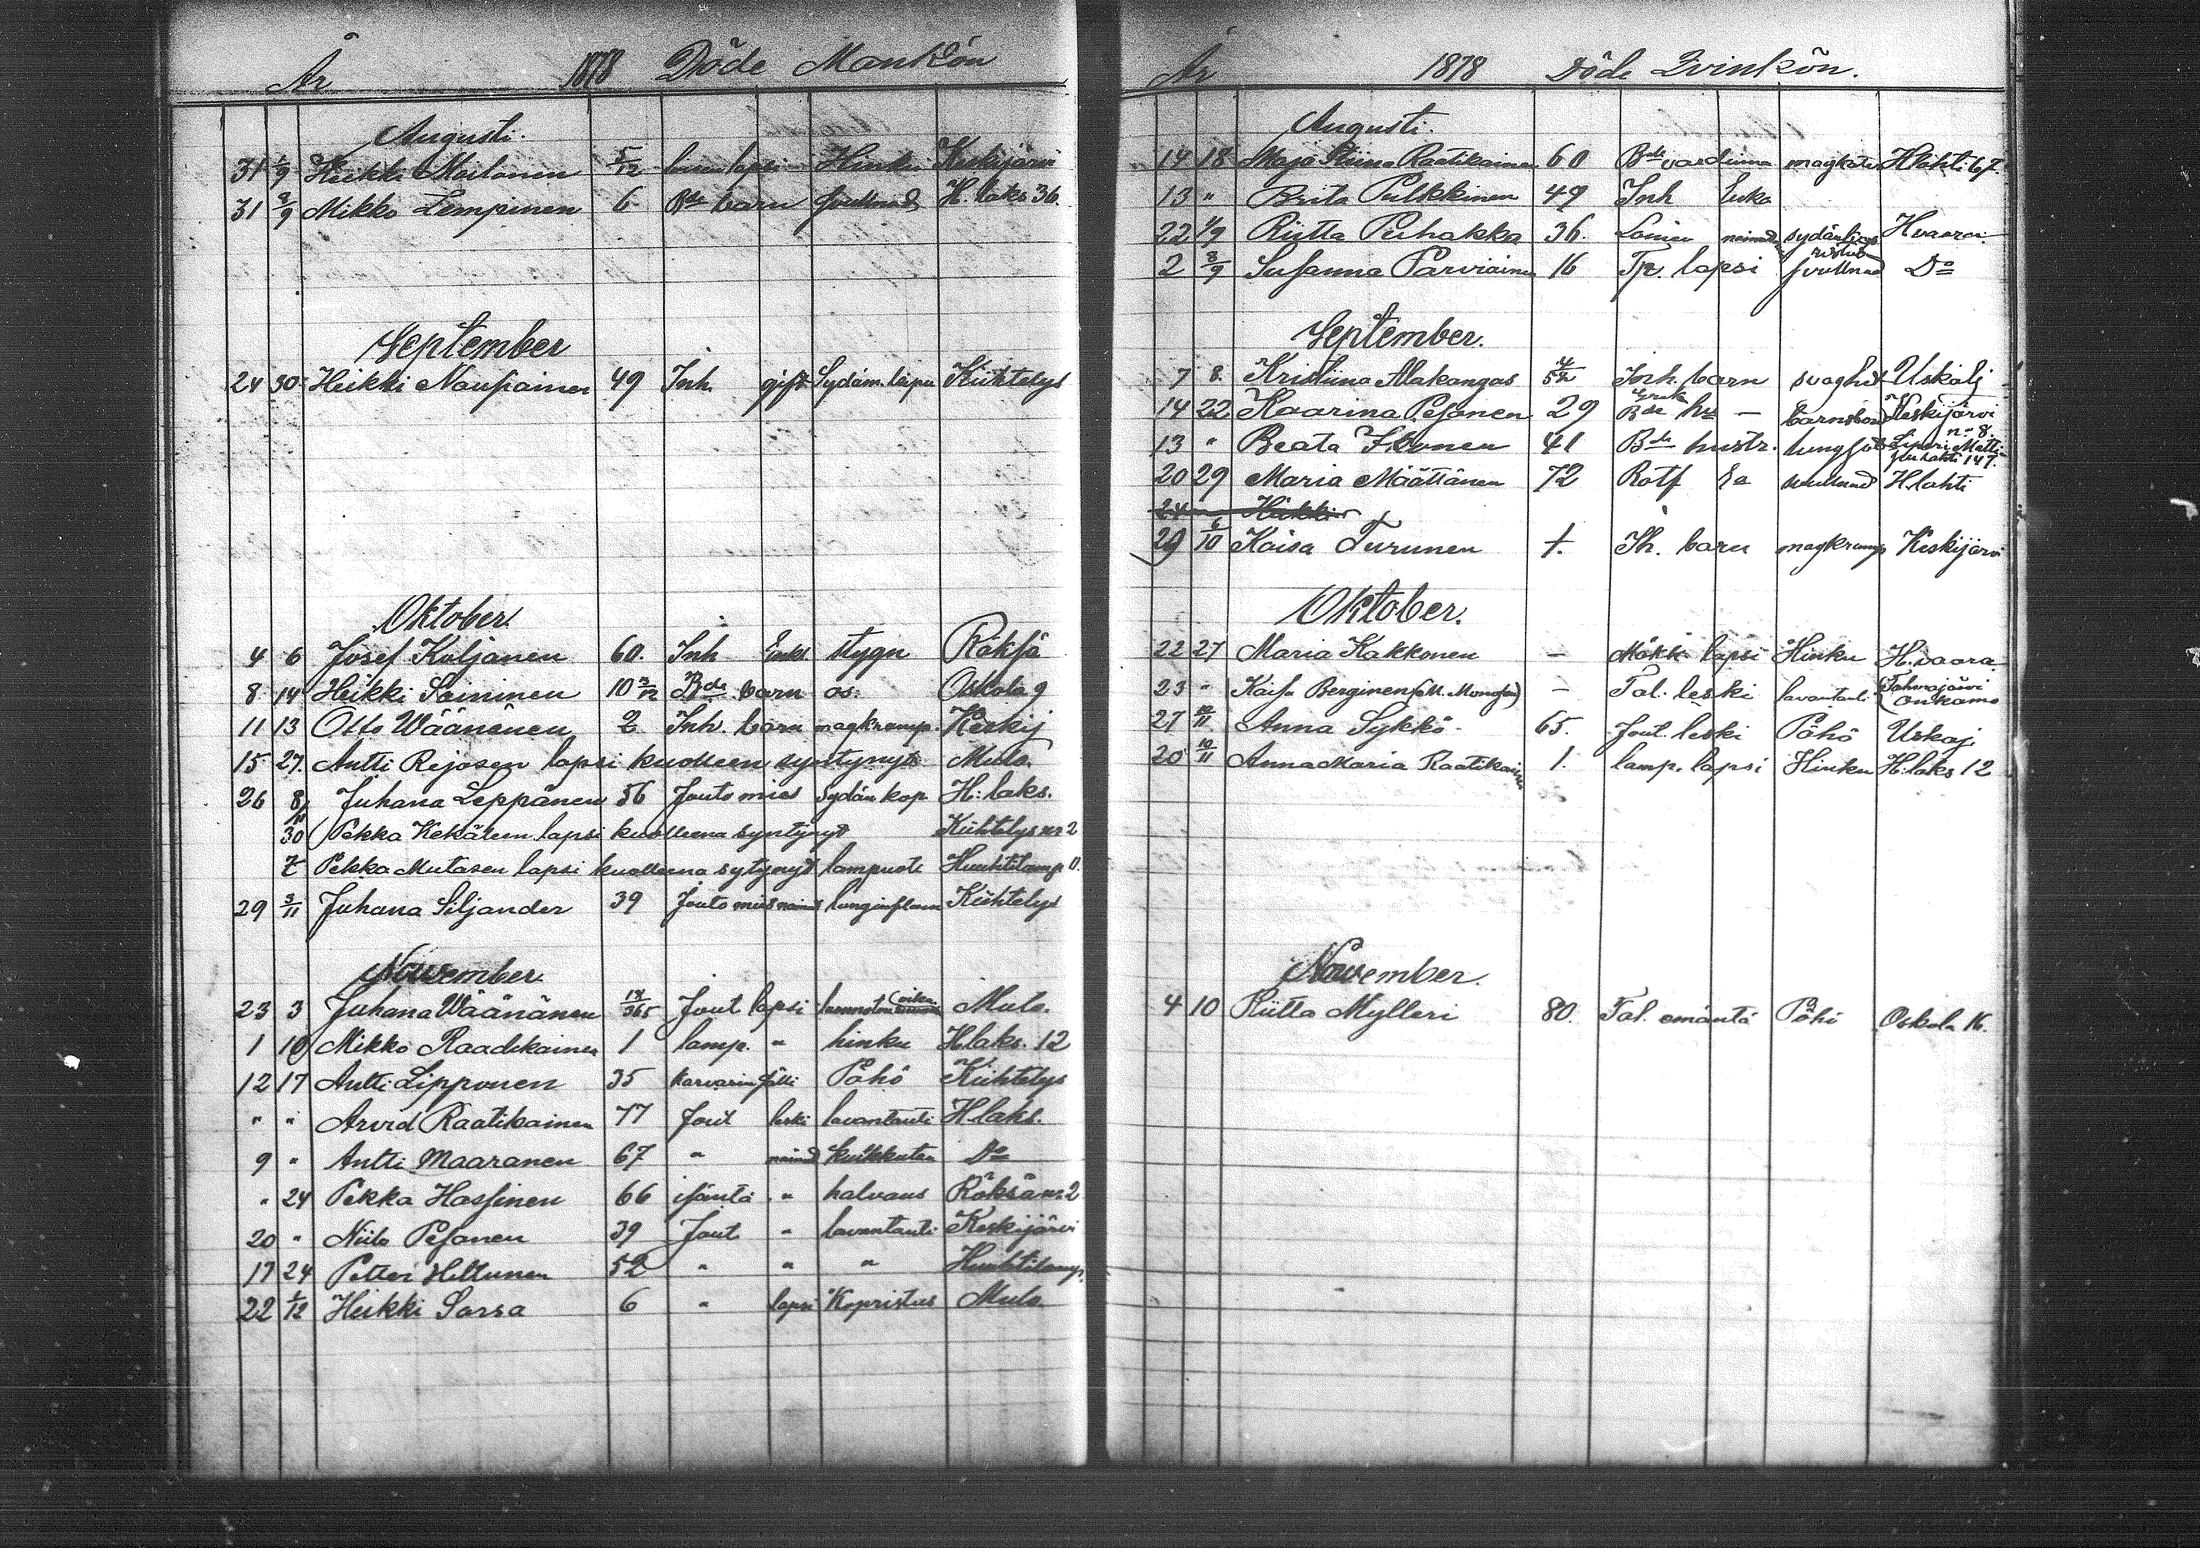 År 1878 Döde Mankön
Augusti.
31 1/9 Heikki Moilanen 5/12 lapsi Hinku Keskijärvi
31 8/9 Mikko Lempinen 6 Bde barn svullnad H. laks 36
September
24 30 Heikki Naupainen 49 Inh. gift Sydäm. Kiihtelys
Oktober
4 6 Josef Koljonen 60. Inh Enkl stygn Röksä
8 14 Heikki Soininen 10 3/12 Bde barn os: Oskola 9
11 13 Otto Wäänänen 2 Inh. barn magkramp. Keskij
15 27. Antti Rejosen lapsi kuolleen syntynyt Mulo.
26 8/11 Juhana Leppänen 56 Jouto mies Sydän kop H: laks.
30 Pekka lapsi kuolleena syntynyt Kiihtelys nr 2
7 Pekka Mutasen lapsi kuolleena sytynyt lampuoti Huuhtilamp
29 3/11 Juhana Siljander 39 Jouto mies nainut Kiihtelys
November
23 3 Juhana Wäänänen 14/365 Jout lapsi Mulo.
1 10 Mikko Raadikainen 1 lamp. " hinku H.laks. 12
12 17 Antti Lipponen 35 karvarin sälli Pöhö Kiihtelys
" " Arvid Raatikainen 77 Jout leski lavantauti H.laks.
9 " Antti Maaranen 67 " nainut kulkkutau Do
" 24 Pekka Hassinen 66 isäntä " halvaus Röksä nr 2
20 " Niilo Pesonen 39 Jout " lavantauti Keskijärvi
17 24 Petter Hiltunen 52 " " " Huuhtilamp.
22 1/12 Heikki Sarsa 6 " lapsi Kopristus Mulo
År 1878 Döde Qvinkön.
Augusti.
14 18 Maja Stiina Raatikainen 60 Bde värdinna H.lahti 67.
13 " Brita Pulkkinen 49 Inh Enka
22 1/9 Riitta Puhakka 36. Loinen nainut sydän H vaara.
2 8/9 Susanna Parviainen 16 Tp. lapsi svullnad Do
September.
7 8. Kristiina Alakangas 4/52 Inh. barn svaghet Uskalj
14 22 Kaarina Pesonen 29 Bde hu - barnsbörd Keskijärvi
n:o 8.
13 " Beata Ikonen 41 Bde hustr. lungsot Liperi, Matti-
147.
20 29 Maria Määttänen 72 Rotf Ea svullnad H.lahti
24 " Heikki
29 6/10 Kaisa Turunen 7. Ih. barn magkramp Keskijärvi
Oktober.
22 27 Maria Kakkonen - Mökki lapsi Hinku H. vaara
23 " Kaisa Berginen - Tal. leski lavantauti Tohmajärvi Onkamo
27 10/11 Anna Sykkö 65. Jout. leski Pöhö Uskaj
20 10/11 Anna Maria Raatikainen 1. lamp. lapsi Hinku H:laks 12
November.
4 10 Riitta Mylleri 80. Tal. emäntä Pöhö Oskola 16.